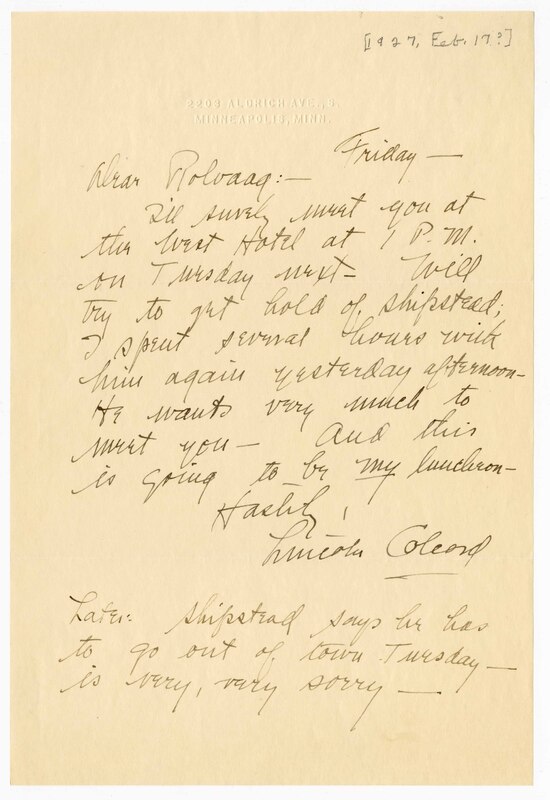 [1927, Feb. 17?]
2203 ALDRICH AVE., S.
MINNEAPOLIS, MINN.
Friday —
Dear Rolvaag:—
I'll surely meet you at
the West Hotel at 1 P.M.
on Tuesday next — Will
try to get hold of Shipstead;
I spent several hours with
him again yesterday afternoon—
He wants very much to
meet you — And this
is going to be my luncheon—
Hastily,
Lincoln Colcord
Later: Shipstead says he has
to go out of town Tuesday—
is very, very sorry —